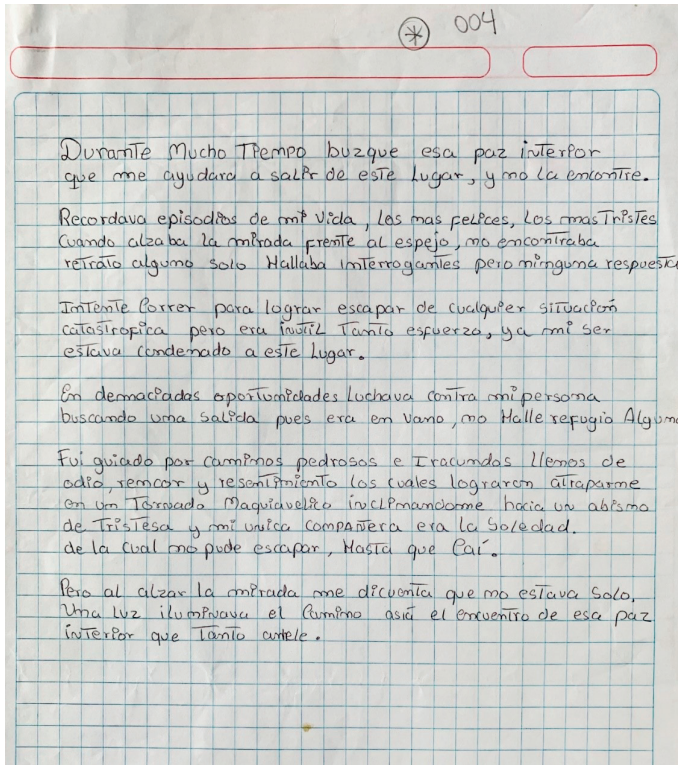 * 004
Durante Mucho Tiempo buzque esa paz interior
que me ayudara a salir de este Lugar, y no la encontre.
Recordava episodios de mi vida, los mas felices, Los mas Tristes
Cuando alzaba la mirada frente al espejo, no encontraba
retrato alguno solo Hallaba interrogantes pero ninguna respuesta
Intente Correr para lograr escapar de cualquier situación
catastrofica pero era inutil Tanto esfuerzo, ya mi ser
estava condenado a este Lugar.
En demaciadas oportunidades Luchava contra mi persona
buscando una salida pues era en vano, no Halle refugio Alguno
Fui guiado por caminos pedrosos e Iracundos llenos de
odio, rencor y resentimiento los cuales lograron atraparme
en un Tornado Maquiavelico inclinandome hacia un abismo
de Tristesa y mi unica compañera era la Soledad.
de la cual no pude escapar, Hasta que Caí.
Pero al alzar la mirada me dicuenta que no estava Solo,
Una luz iluminava el Camino asia el encuentro de esa paz
interior que Tanto anhele.